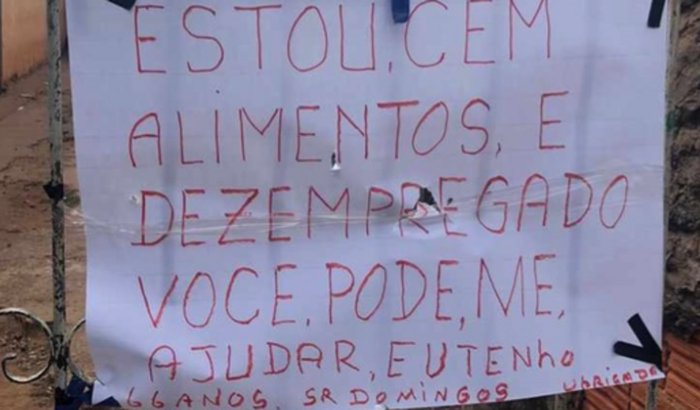 ESTOU, CEM
ALIMENTOS, E
DEZEMPREGADO
VOCE, PODE, ME,
AJUDAR, EUTENHO
66 ANOS, SR DOMINGOS UBRIGADO